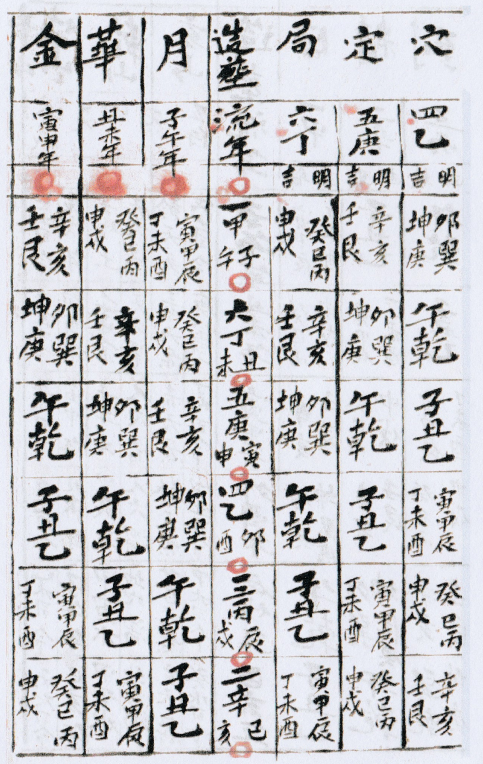 穴
四乙
明吉
卯巽
坤庚
午乾
子丑乙
寅甲辰
丁未酉
癸巳丙
申戌
辛亥
壬艮
定
五庚
明吉
辛亥
壬艮
卯巽
坤庚
午乾
子丑乙
寅甲辰
丁未酉
癸巳丙
申戌
局
六丁
明吉
癸巳丙
申戌
辛亥
壬艮
卯巽
坤庚
午乾
子丑乙
寅甲辰
丁未酉
造塟
流年
一甲
子午
六丁
丑未
五庚
寅申
四乙
卯酉
三丙
辰戌
二辛
巳亥
月
子午年
寅甲辰
丁未酉
癸巳丙
申戌
辛亥
壬艮
卯巽
坤庚
午乾
子丑乙
華
丑未年
癸巳丙
申戌
辛亥
壬艮
卯巽
坤庚
午乾
子丑乙
寅甲辰
丁未酉
金
寅申年
辛亥
壬艮
卯巽
坤庚
午乾
子丑乙
寅甲辰
丁未酉
癸巳丙
申戌